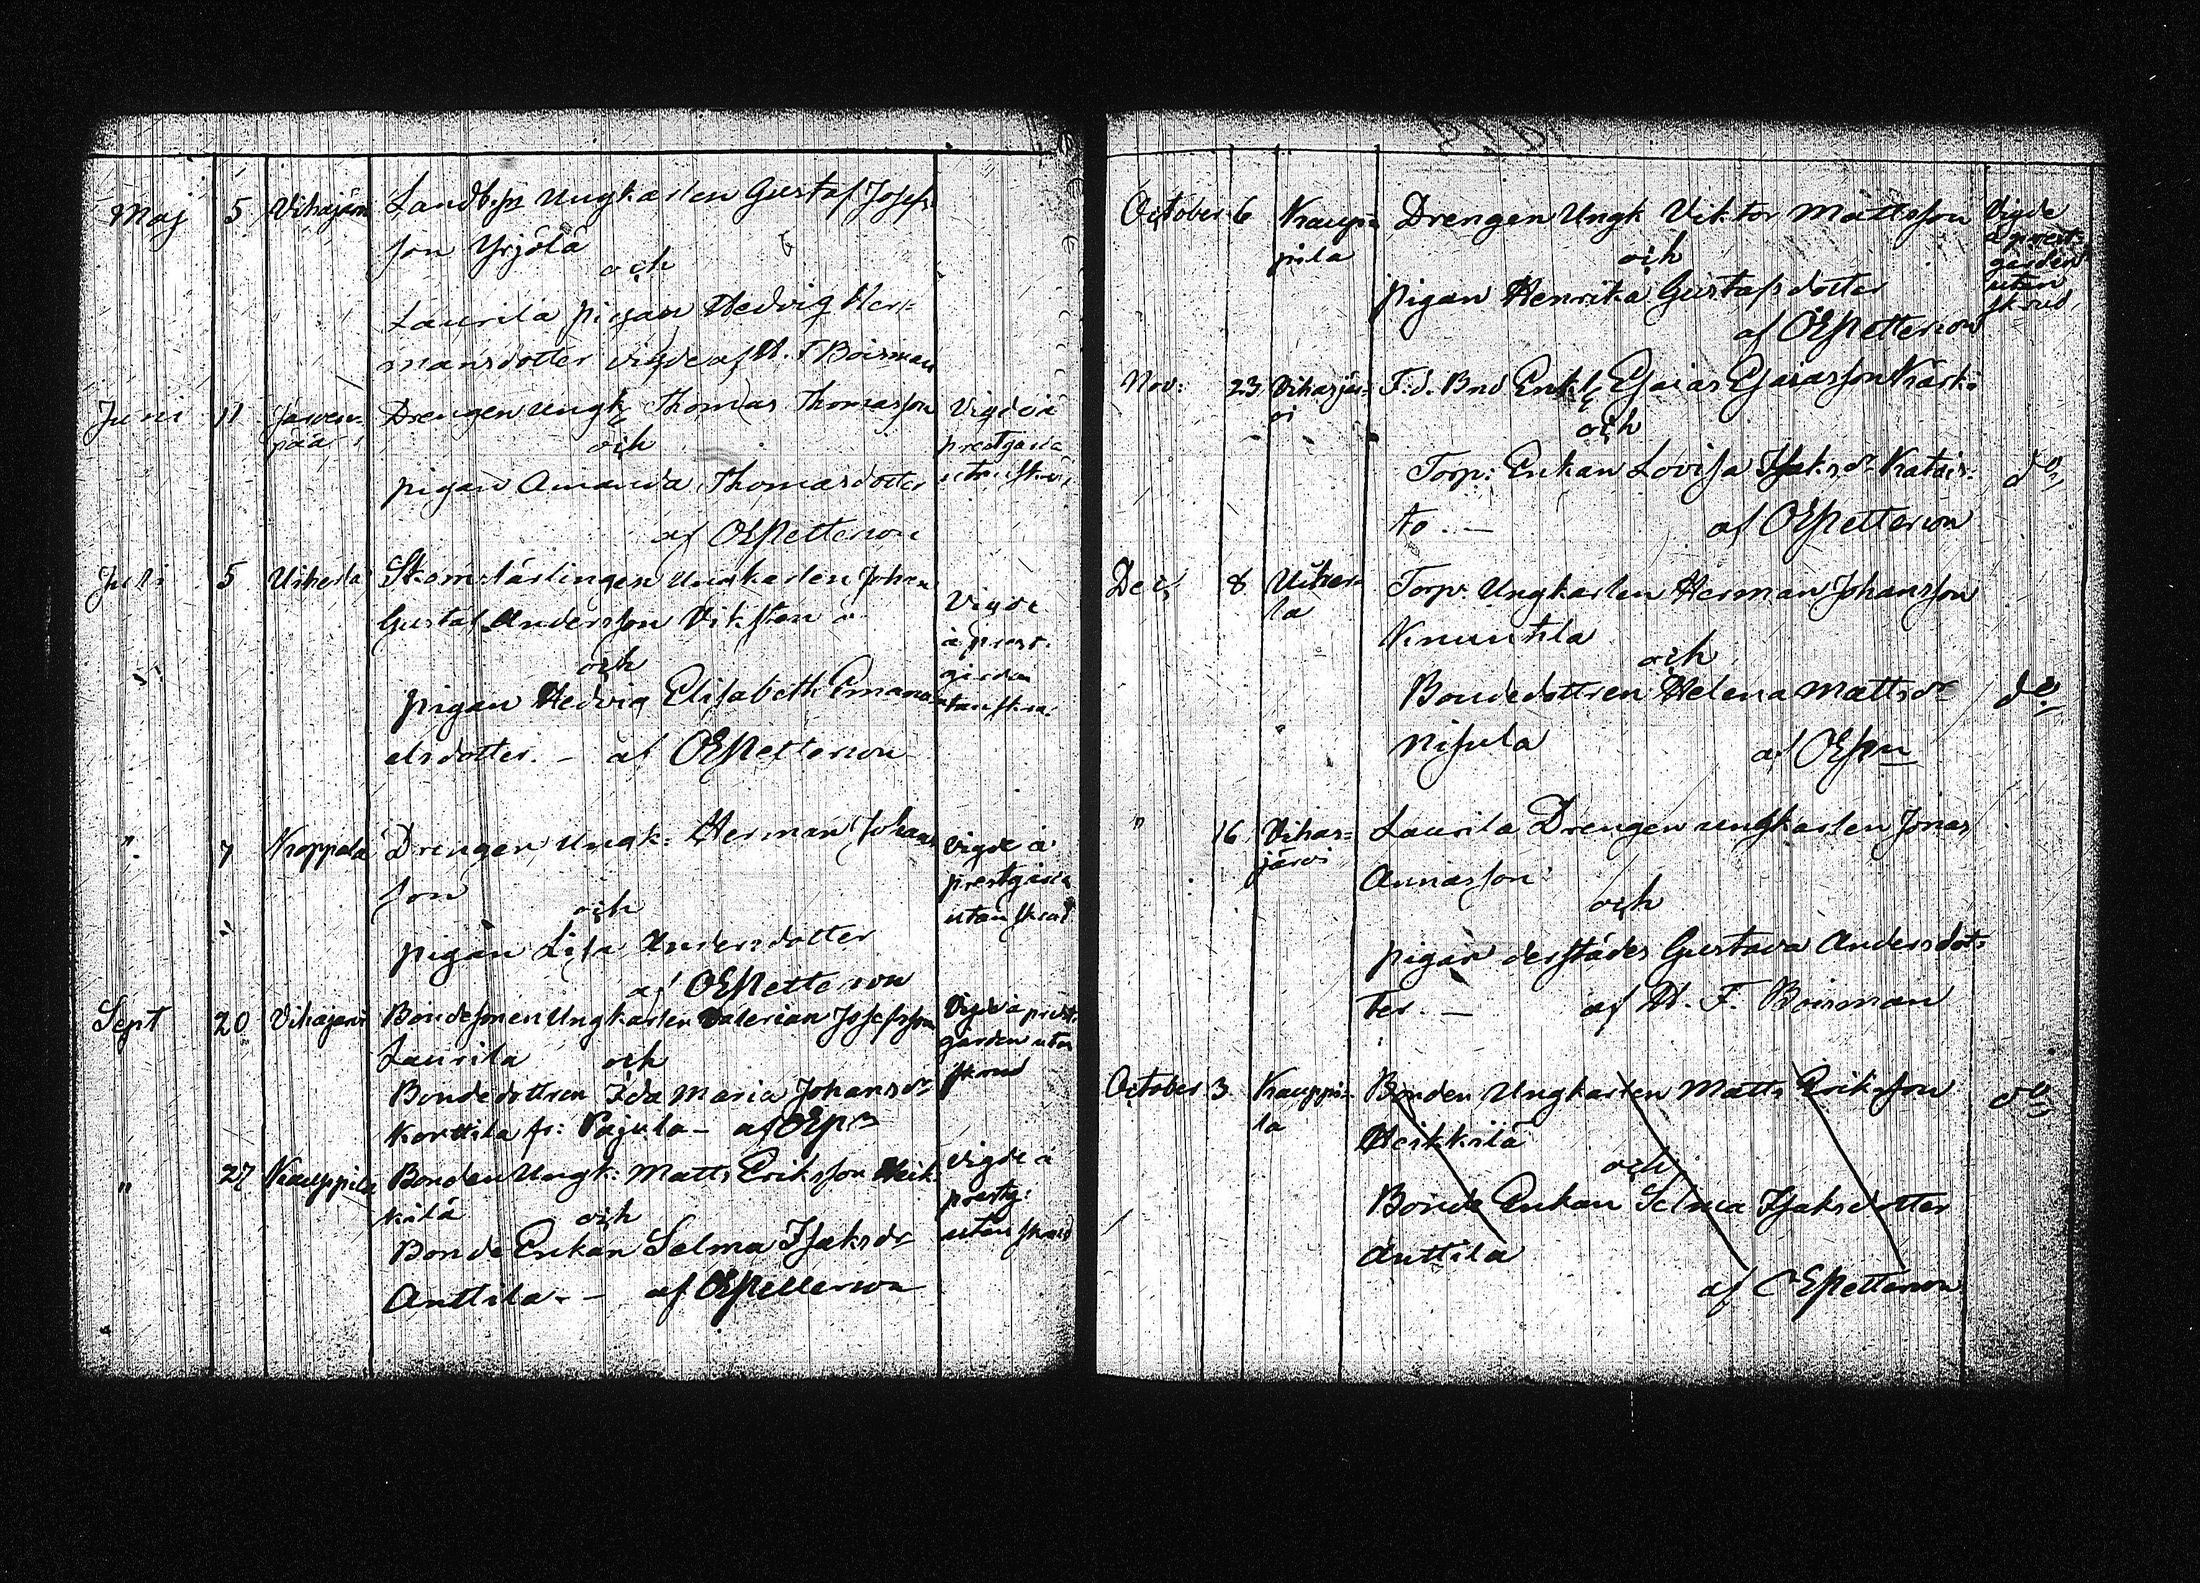 Maj 5 Vihajärvi Landb:s Ungkarlen Gustaf Josefs-
son Yrjölä
och
Laurila pigan Hedvig Her-
mansdotter vigde af H. F Boisman
Juni 11 Jävenpää Drengen Ungk: Thomas Thomasson
och
pigan Amanda Thomasdotter
af OEPetterson
Vigde å
prestgårde
utan skrud
Juli 5 Uiherla Skom:lärlingen Ungkarlen Johan
Gustaf Andersson Viksten
och
pigan Hedvig Elisabeth Emanu-
elsdotter. – af OEPetterson
Vigde
å prest-
gården
utan skru:
" 7 Kroppala Drengen Ungk: Herman Johans
son
och
pigan Lisa Andersdotter
af OEPetterson
Vigde å
prestgården
utan skrud
Sept 20 Vihajärvi Bondesonen Ungkarlen Valerian Josefsson
Laurila och
Bondedottren Ida Maria Johansdr
Korttila fr: Pajula – af OEPn
Vigde å prest-
gården utan
skrud
" 27 Kauppila Bonden Ungk: Matts Eriksson Heik-
kilä
och
Bonde Enkan Selma Isaksdr
Anttila. – af OEPetterson
Vigde å
prestg:
utan skrud
October 6 Kaup-
pila
Drengen Ungk Viktor Mattsson
och
pigan Henrika Gustafsdotter
af OEPetterson
Vigde
å prest-
gården
utan
skrud
Nov: 23 Viharjär-
vi
F.d. Bnd Enkl: Esaias Esaiasson Kärki
och
Torp: Enkan Lovisa Isaksdr Katais-
to. – af OEPetterson
do
Dec, 8 Uiher-
la
Torp: Ungkarlen Herman Johansson
Knuutila
och
Bondedottren Helena Mattsdr
Nisula af OEPn
do
" 16 Vihar-
järvi
Laurila Drengen ungkarlen Jonas
Annasson
och
pigan derstädes Gustava Andersdot-
ter. – af H. F. Boisman
October 3 Kauppi-
la
Bonden Ungkarlen Matts Eriksson
Heikkilä
och
Bonde Enkan Selma Isaksdotter
Anttila
af OEPetterson
do